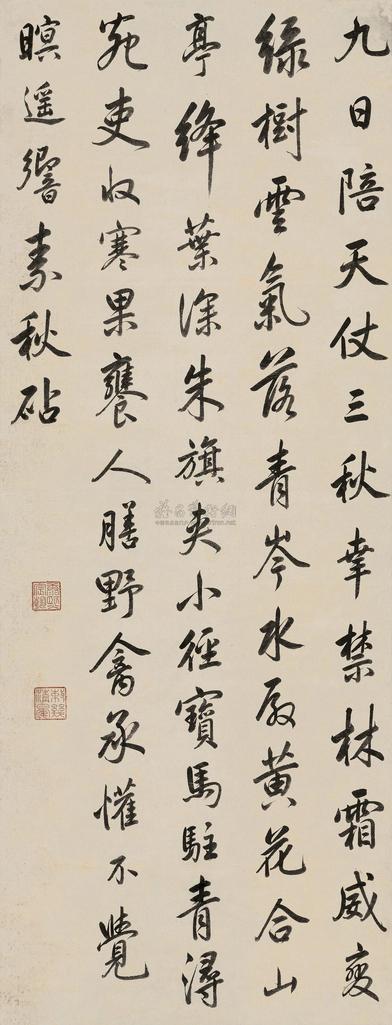 九日陪天仗三秋幸禁林霜威變
綠樹雲氣落青岑水殿黄花合山
亭絳葉深朱旗夾小徑寶馬駐青潯
苑吏收寒果饔人膳野禽承懽不覺
暝遥響素秋砧